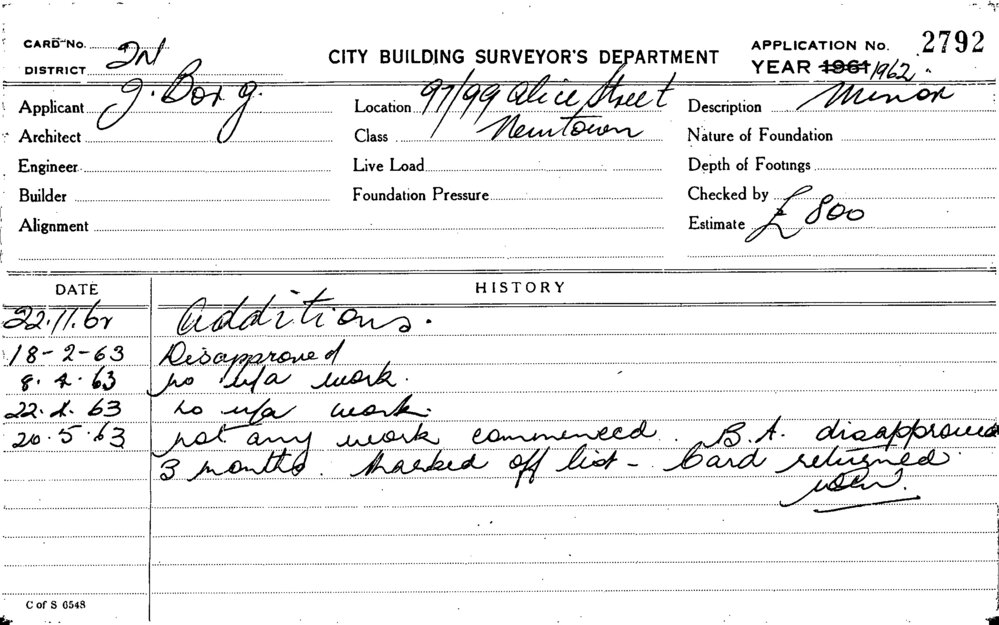 CARD No. 2N
DISTRICT
CITY BUILDING SURVEYOR'S DEPARTMENT
APPLICATION No. 2792
YEAR 1961 1962
Applicant J. Borg.
Location 97/99 Alice Street
Newtown
Description Minor
Architect
Class
Nature of Foundation
Engineer
Live Load
Depth of Footings
Builder
Foundation Pressure
Checked by
Alignment
Estimate £ 800
DATE HISTORY
22.11.62 Additions.
18-2-63 Disapproved
8.4.63 no u/a work.
22.4.63 no u/a work.
20.5.63 not any work commenced. B.A. disapproved
3 months. Marked off list - Card returned
C of S 6548